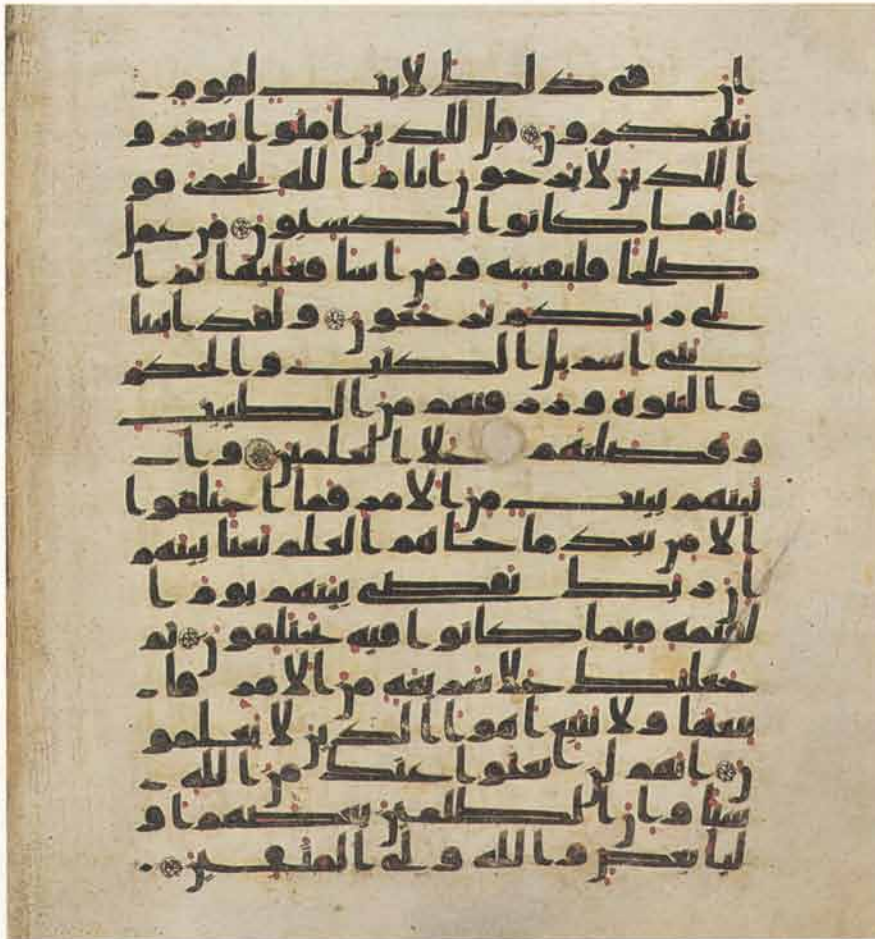 ان فى ذلك لايت لقوم
يتفكرون قل للذين امنوا يغفرو
ا للذين لا يرجون ايام الله ليجزى قو
ما بما كانوا يكسبون من عمل
صلحا فلنفسه ومن اسا فعليها ثم ا
لى ربكم ترجعون ولقد اتينا
بنى اسريل الكتب والحكم
والنبوة ورزقنهم من الطيبت
وفضلنهم على العلمين وا
تينهم بينت من الامر فما اختلفوا
الا من بعد ما جاهم العلم بغيا بينهم
ان ربك يقضى بينهم يوم ا
لقيمة فيما كانوا فيه يختلفون ثم
جعلنك على شريعة من الامر فا
تبعها ولا تتبع اهوا الذين لا يعلمو
ن انهم لن يغنوا عنك من الله
شيا وان الظلمين بعضهم او
ليا بعض والله ولى المتقين